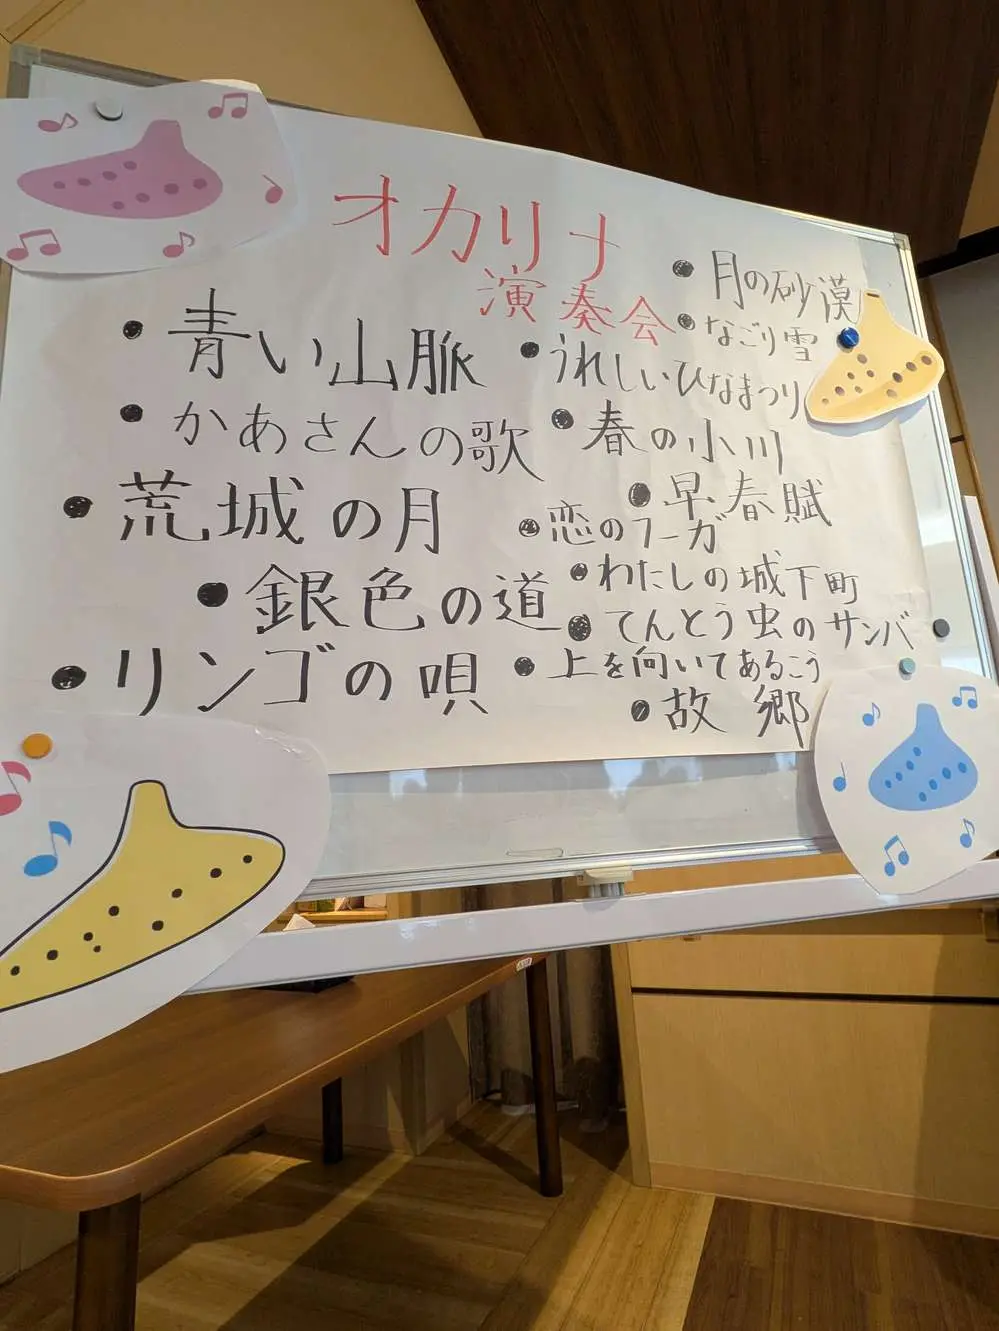 オカリナ
演奏会
• 青い山脈
• かあさんの歌
• 荒城の月
• 銀色の道
• リンゴの唄
• 月の砂漠
• なごり雪
• うれしいひなまつり
• 春の小川
• 早春賦
• 恋のフーガ
• わたしの城下町
• てんとう虫のサンバ
• 上を向いてあるこう
• 故郷